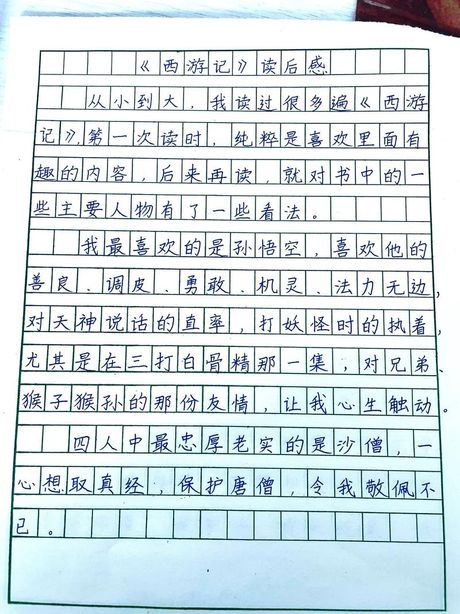 《西游记》读后感
从小到大，我读过很多遍《西游
记》，第一次读时，纯粹是喜欢里面有
趣的内容，后来再读，就对书中的一
些主要人物有了一些看法。
我最喜欢的是孙悟空，喜欢他的
善良、调皮、勇敢、机灵、法力无边，
对天神说话的直率，打妖怪时的执着，
尤其是在三打白骨精那一集，对兄弟、
猴子猴孙的那份友情，让我心生触动。
四人中最忠厚老实的是沙僧，一
心想取真经，保护唐僧，令我敬佩不
已。